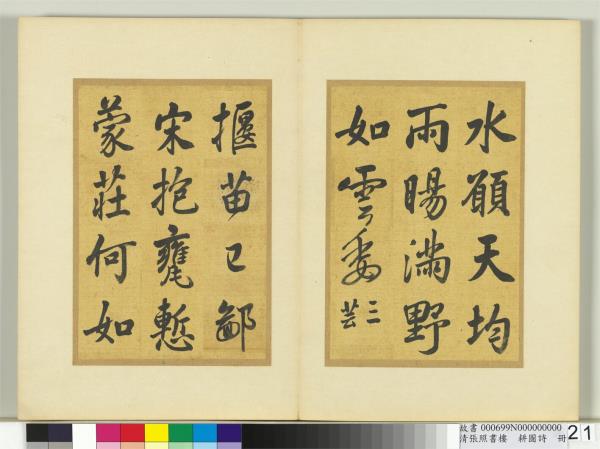 水願天均
雨暘滿野
如雲委
三芸
揠苗已鄙
宋抱甕慙
蒙莊何如
故書 000699N000000000
清張照書樓 耕圖詩 冊
21